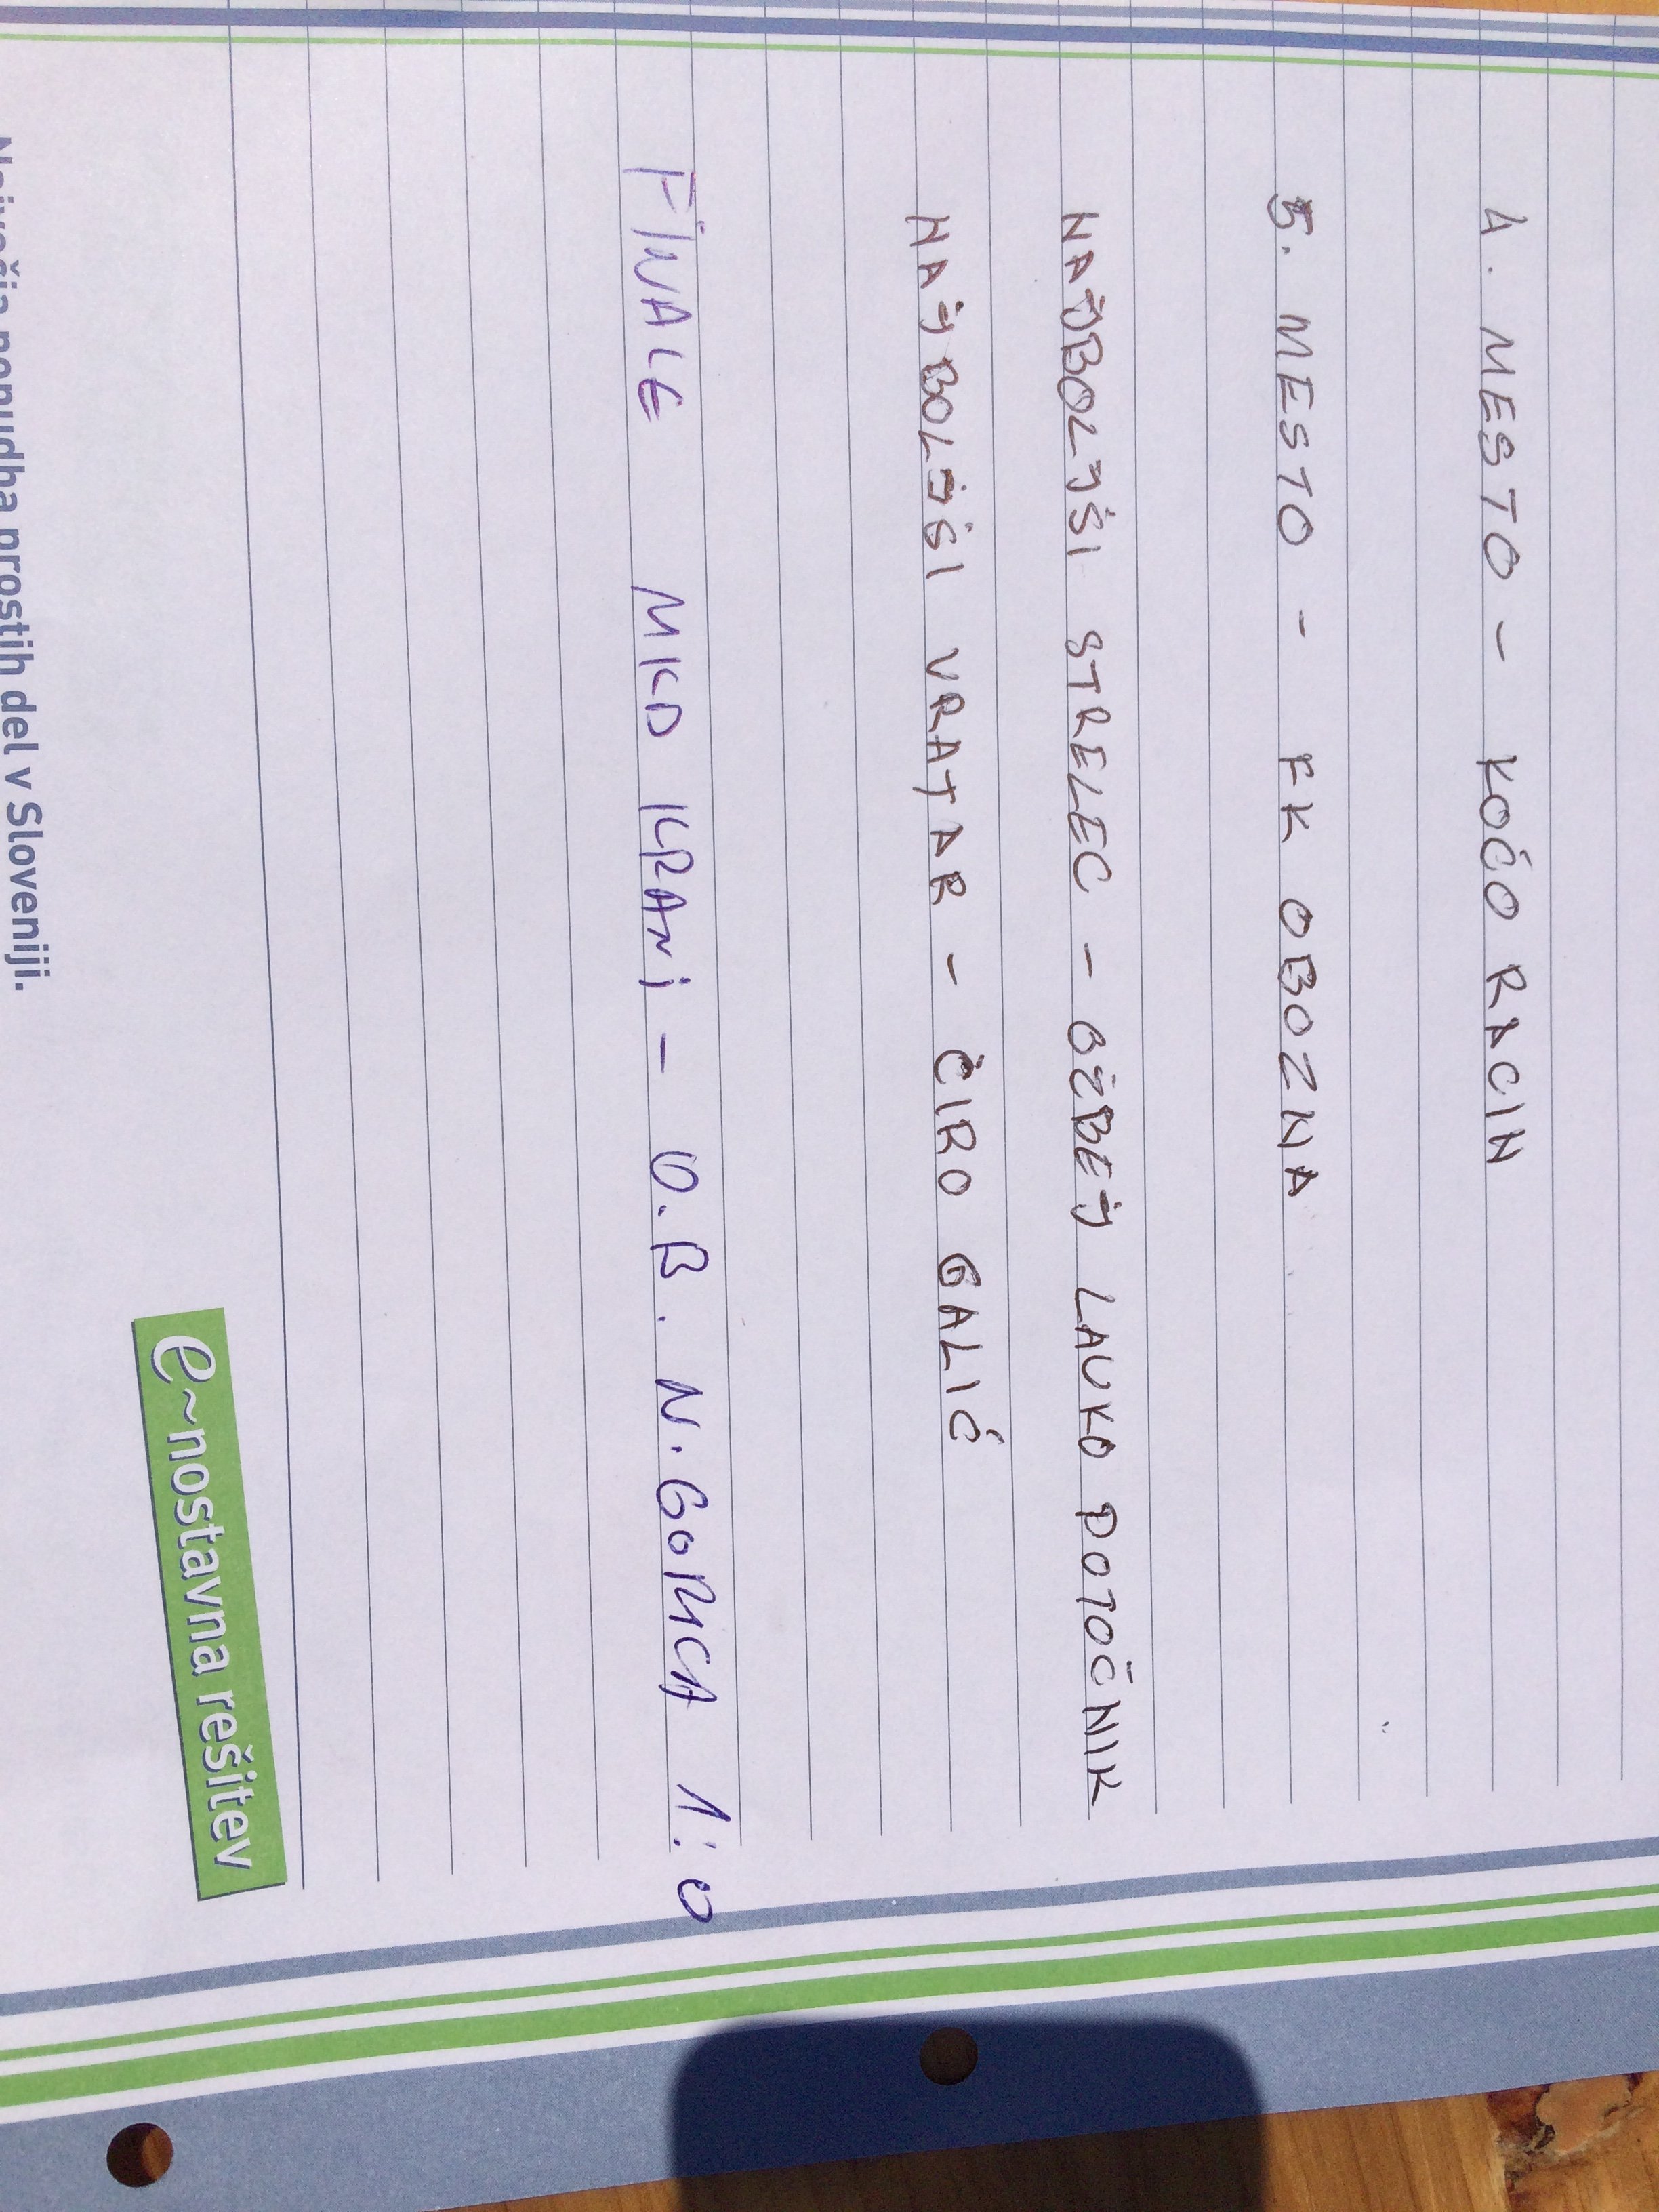 4. MESTO - KOČO RACIN
5. MESTO - FK OBOZNA
NAJBOLJŠI STRELEC - OŽBEJ LAVKO POTOČNIK
NAJBOLJŠI VRATAR - ĆIRO GALIĆ
FINALE MKD KRANJ - O.B. N. GORICA 1:0
e~nostavna rešitev
ponudba prostih del v Sloveniji.